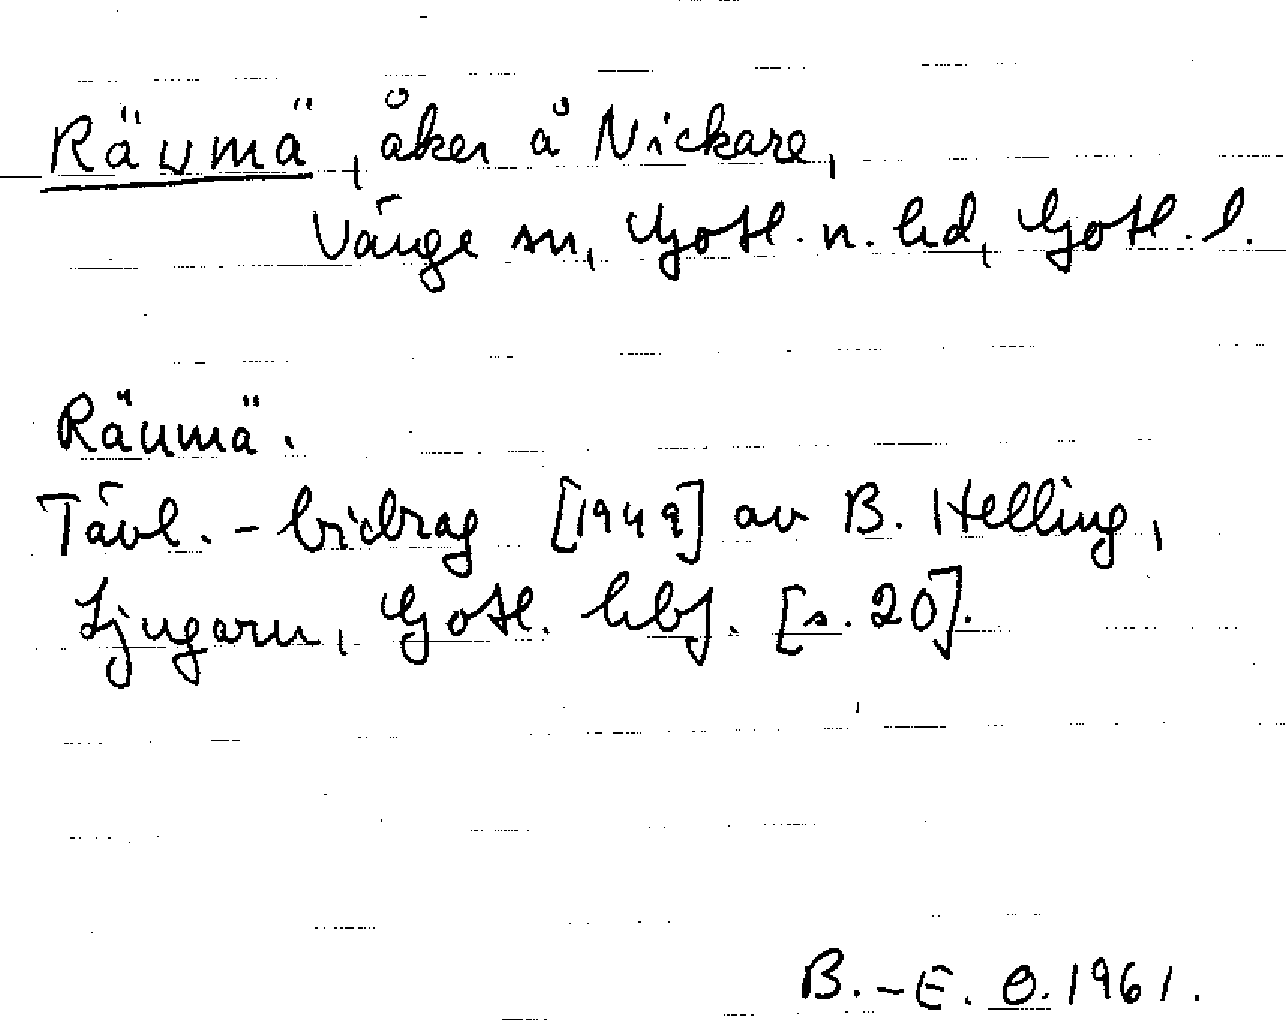 Räumä, åker å Nickare,
Vänge sn, Gotl. n. hd, Gotl. l.
Räumä.
Tävl.-bidrag [1949] av B. Helling,
Ljugarn, Gotl. hbf. [s. 20].
B.-E. O. 1961.